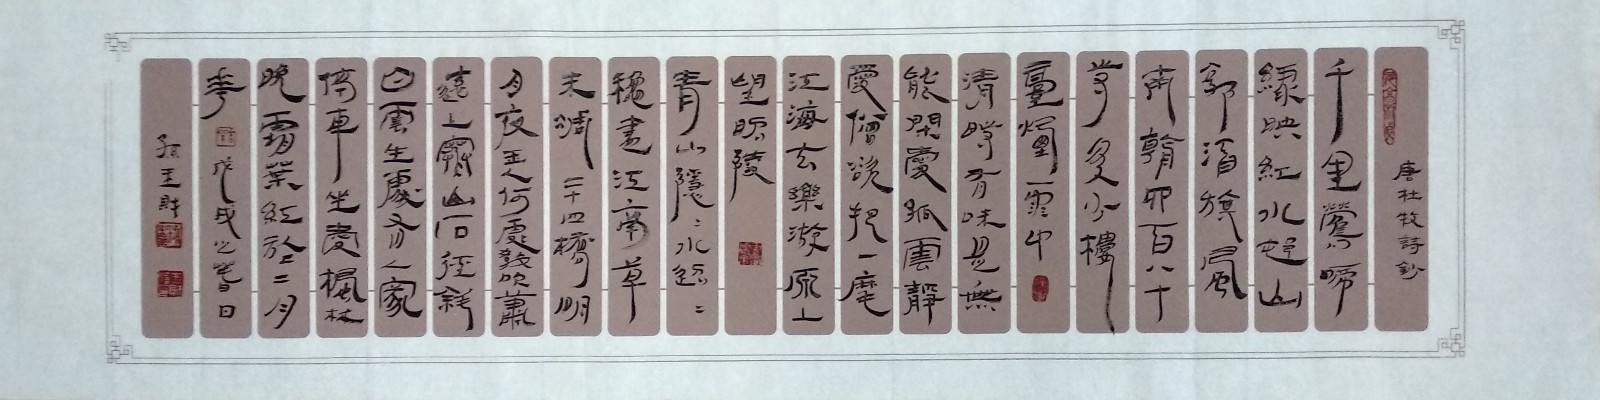 唐杜牧詩鈔
千里鶯啼
緑映紅水邨山
郭酒旗風
南朝四百八十
寺多少樓
臺煙雨中
清時有味是無
能閑愛孤雲靜
愛僧欲把一麾
江海去樂遊原上
望昭陵
青山隱〻水迢〻
穐盡江南草
未凋二十四橋明
月夜玉人何處教吹蕭
遠上寒山石徑斜
白雲生處有人家
停車坐愛楓林
晚霜葉紅於二月
華 戊戌之春日
孫玉財